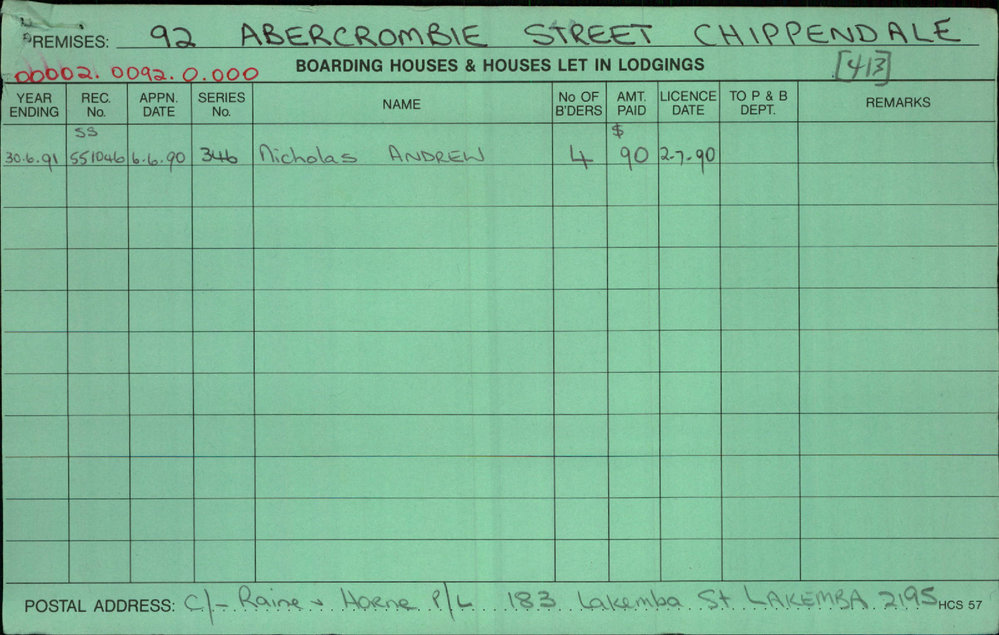 PREMISES: 92 ABERCROMBIE STREET CHIPPENDALE
00002.0092.0.000 BOARDING HOUSES & HOUSES LET IN LODGINGS [413]
YEAR ENDING REC. No. APPN. DATE SERIES No. NAME No OF B'DERS AMT. PAID LICENCE DATE TO P & B DEPT. REMARKS
SS $
30.6.91 551046 6.6.90 346 Nicholas ANDREW 4 90 2-7-90
POSTAL ADDRESS: C/- Raine & Horne P/L 183 Lakemba St LAKEMBA 2195 HCS 57